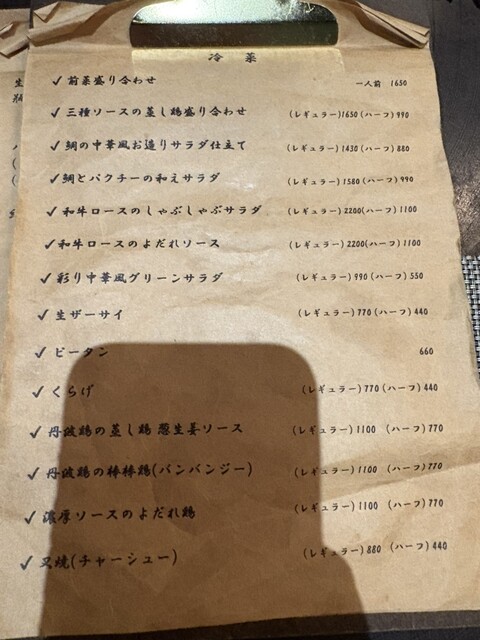 冷菜
✓ 前菜盛り合わせ 一人前 1650
✓ 三種ソースの蒸し鶏盛り合わせ (レギュラー)1650 (ハーフ) 990
✓ 鯛の中華風お造りサラダ仕立て (レギュラー) 1430 (ハーフ) 880
✓ 鯛とパクチーの和えサラダ (レギュラー) 1580 (ハーフ) 990
✓ 和牛ロースのしゃぶしゃぶサラダ (レギュラー) 2200 (ハーフ) 1100
✓ 和牛ロースのよだれソース (レギュラー) 2200 (ハーフ) 1100
✓ 彩り中華風グリーンサラダ (レギュラー) 990 (ハーフ) 550
✓ 生ザーサイ (レギュラー) 770 (ハーフ) 440
✓ ピータン 660
✓ くらげ (レギュラー) 770 (ハーフ) 440
✓ 丹波鶏の蒸し鶏 葱生姜ソース (レギュラー) 1100 (ハーフ) 770
✓ 丹波鶏の棒棒鶏(バンバンジー) (レギュラー) 1100 (ハーフ) 770
✓ 濃厚ソースのよだれ鶏 (レギュラー) 1100 (ハーフ) 770
✓ 叉焼(チャーシュー) (レギュラー) 880 (ハーフ) 440